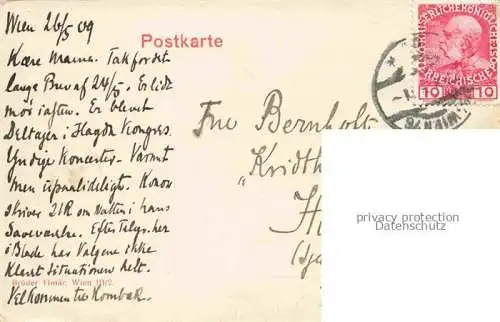 Wien 26/5 09
Postkarte
Kære Mama. Tak for det
lange Brev af 24/5. Er lidt
mör i aften. Er blevet
Deltager i Haydn Kongres.
Yndige Koncerter. Varmt
men upaalideligt. Konow
skriver 21R om Natten i hans
Efter Telegr. her
i Blade has Valgene ikke
klaret Situationen helt.
Velkommen
Brüder Wien III/2.
KAISERLICHE KÖNIGLICHE
ÖSTERREICHISCHE POST
10 10
WIEN 76
Fru Bernholt
"Kridth
H
(Sja
privacy protection
Datenschutz